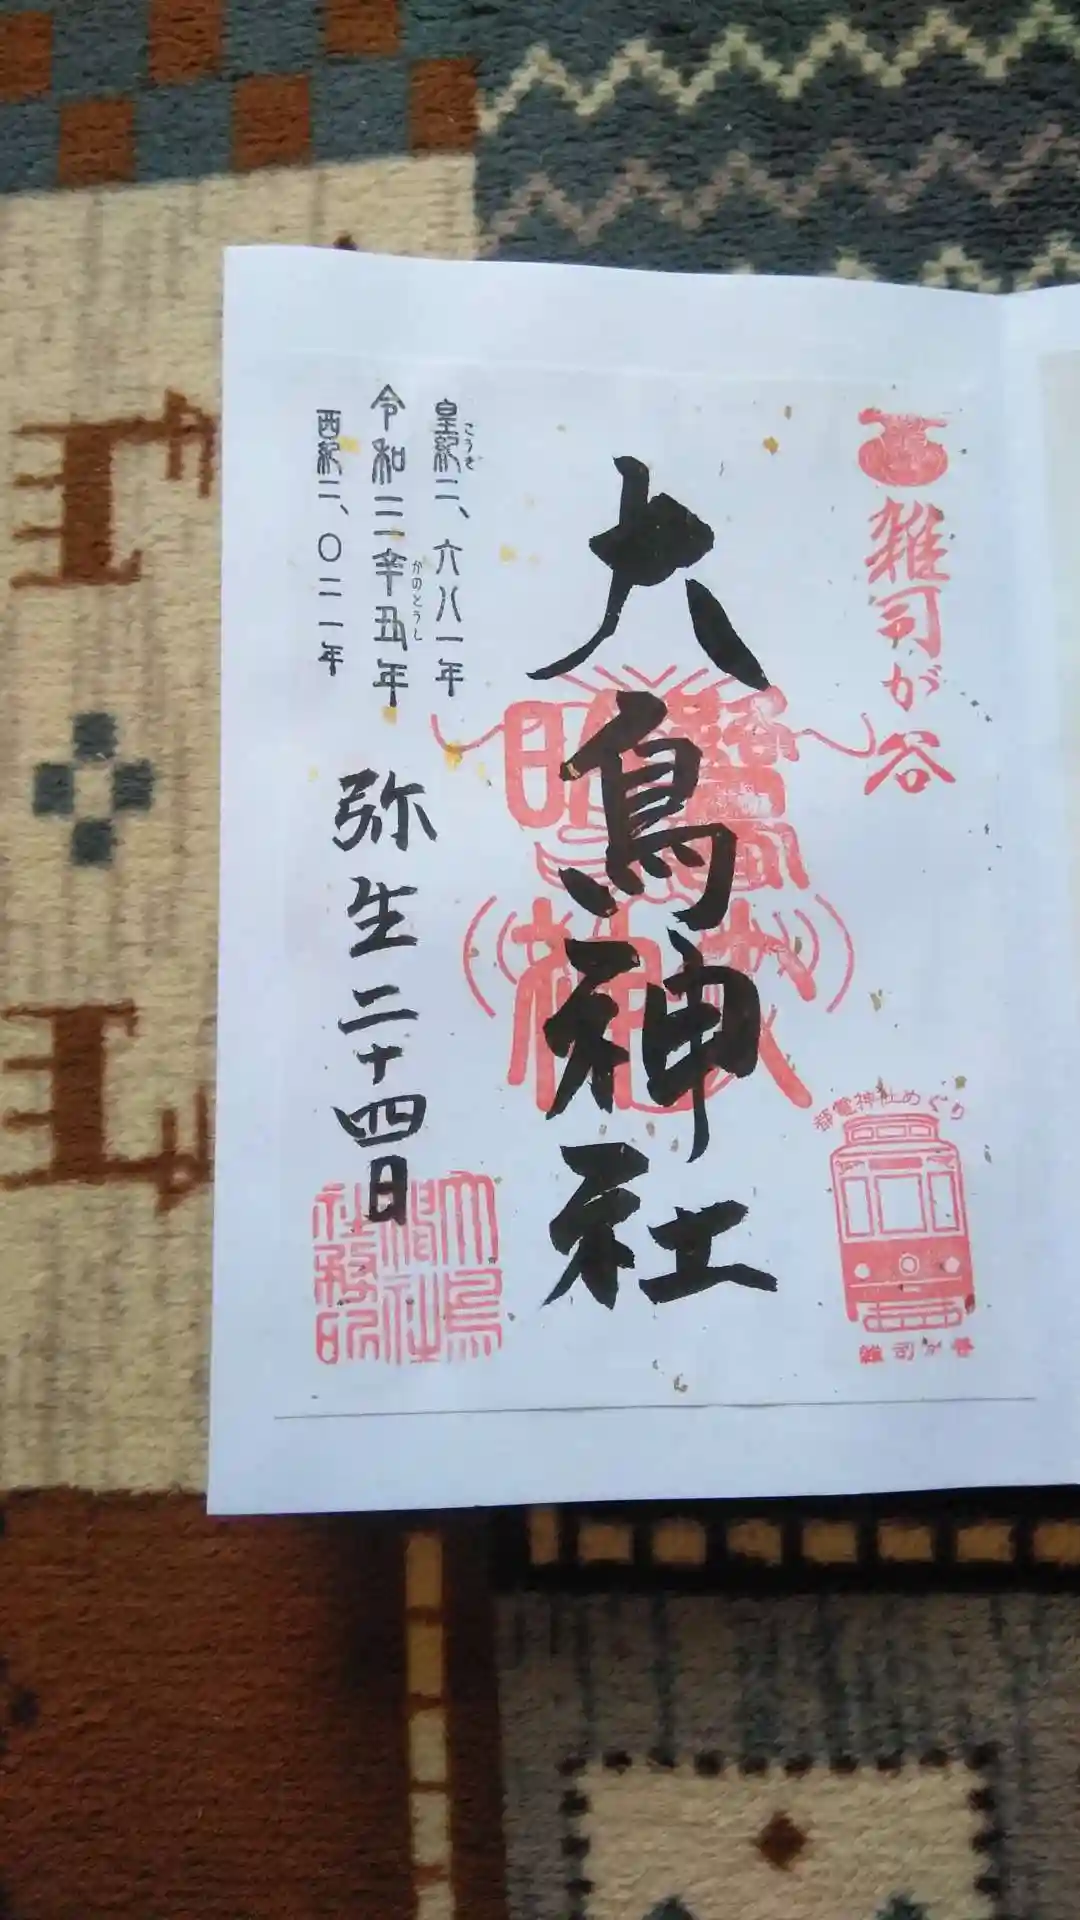 雑司が谷
大鳥神社
皇紀二、六八一年
こうき
令和三辛丑年
かのとうし
西紀二、〇二一年
弥生二十四日
都電神社めぐり
雑司が谷